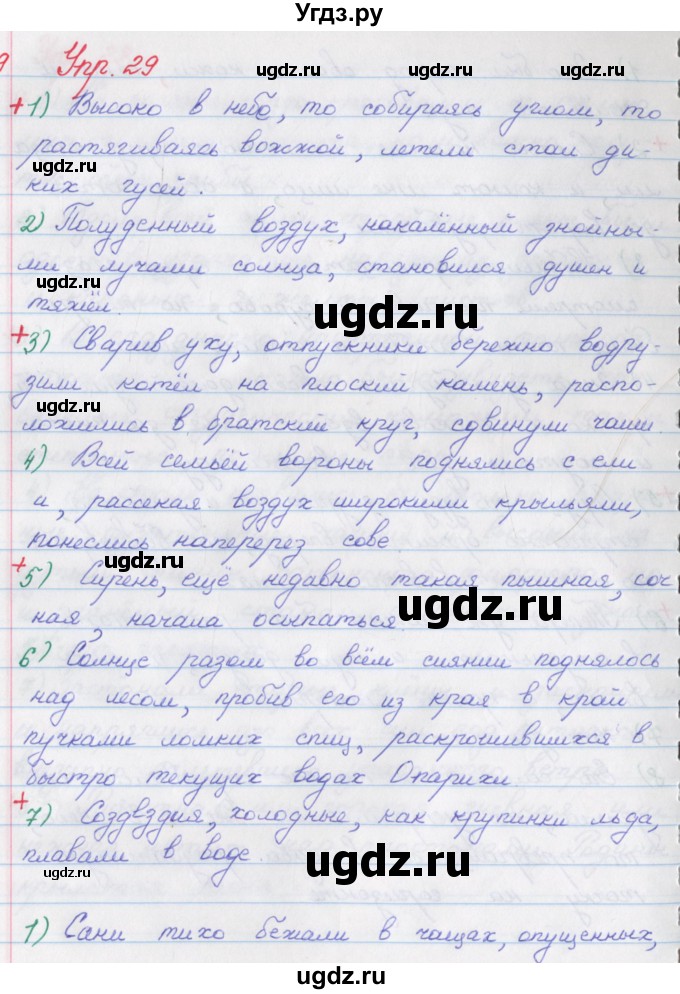 Угдз.ру
9 Упр. 29
ugdz.ru ugdz.ru ugdz.ru
+1) Высоко в небо, то собираясь углом, то
растягиваясь вожжой, летели стаи ди-
ugdz.ru
ких гусей.
2) Полуденный воздух, накалённый знойны-
ми лучами солнца, становился душен и
тяжёл.
ugdz.ru
+3) Сварив уху, отпускники бережно водру-
зили котёл на плоский камень, распо-
ugdz.ru
ложились в братский круг, сдвинули чаши
4) Всей семьёй вороны поднялись с ели
и, рассекая воздух широкими крыльями,
понеслись наперерез сове
ugdz.ru
+5) Сирень, ещё недавно такая пышная, соч
ная, начала осыпаться.
ugdz.ru
6) Солнце разом во всём сиянии поднялось
над лесом, пробив его из края в край
пучками ломких спиц, раскрошившихся в
быстро текущих водах Опарихи.
+7) Создвздия, холодные, как крупинки льда,
плавали в воде.
ugdz.ru
1) Сани тихо бежали в чащах, опущенных,
ugdz.ru